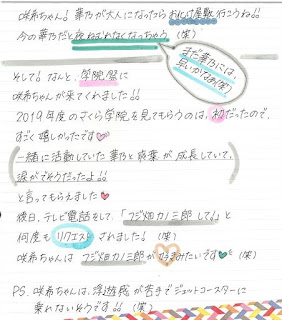 咲希ちゃん!華乃が大人になったらお化け屋敷行こうね!!
今の華乃だと夜ねむれなくなっちゃう(笑)
まだ華乃には、
早いかなあ(笑)
そして!なんと、学院祭に
咲希ちゃんが来てくれました!!
2019年度のさくら学院を見てもらうのは、初だったので、
すごく嬉しかったです♡
一緒に活動していた華乃と
が成長していて、
涙がでそうだったよ!!
と言ってもらえました♥
後日、テレビ電話をして、「フジ畑カノ三郎して!」と
何度もリクエストされました!(笑)
咲希ちゃんは フジ畑カノ三郎が好きみたいです♥(笑)
P.S. 咲希ちゃんは、浮遊感が苦手でジェットコースターに
乗れないそうです!!(笑)